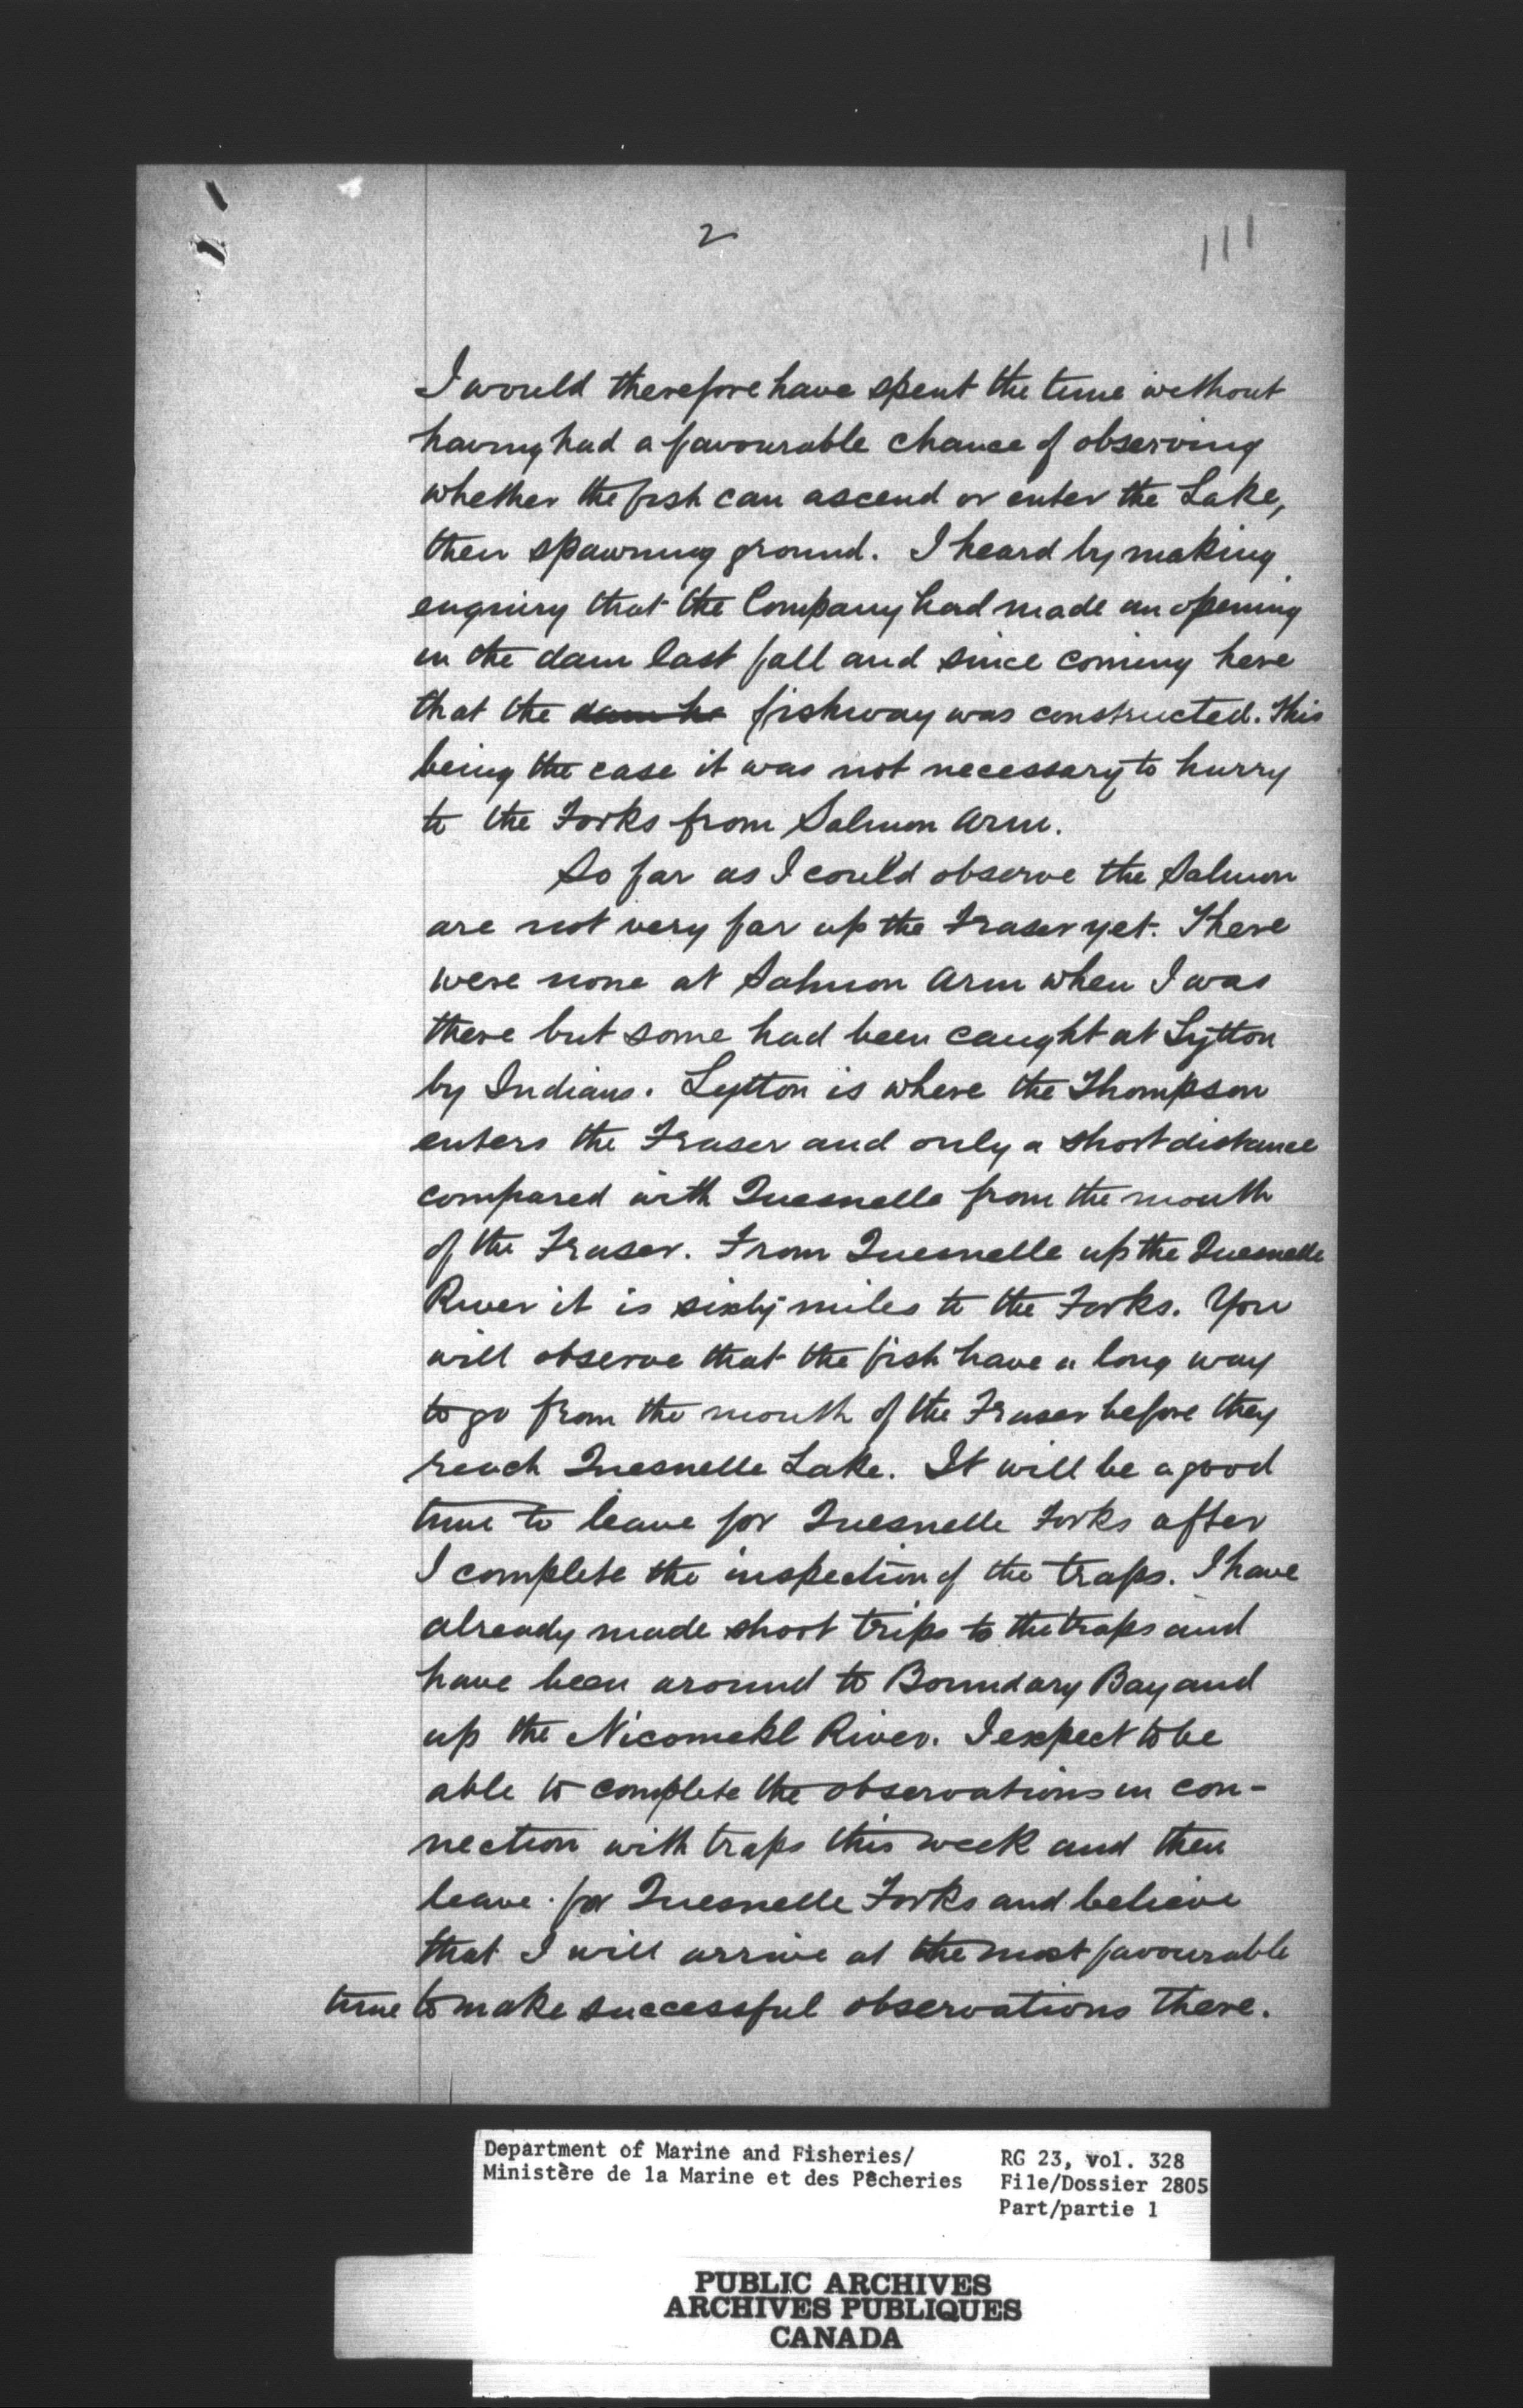 2
111
I would therefore have spent the time without
having had a favourable chance of observing
whether the fish can ascend or enter the Lake,
their spawning ground. I heard by making
enquiry that the Company had made an opening
in the dam last fall and since coming here
that the dam ha fishway was constructed. This
being the case it was not necessary to hurry
to the Forks from Salmon Arm.
So far as I could observe the Salmon
are not very far up the Fraser yet. There
were none at Salmon Arm when I was
there but some had been caught at Lytton
by Indians. Lytton is where the Thompson
enters the Fraser and only a short distance
compared with Quesnelle from the mouth
of the Fraser. From Quesnelle up the Quesnelle
River it is sixty miles to the Forks. You
will observe that the fish have a long way
to go from the mouth of the Fraser before they
reach Quesnelle Lake. It will be a good
time to leave for Quesnelle Forks after
I complete the inspection of the traps. I have
already made short trips to the traps and
have been around to Boundary Bay and
up the Nicomekl River. I expect to be
able to complete the observations in con-
nection with traps this week and then
leave for Quesnelle Forks and believe
that I will arrive at the most favourable
time to make successful observations there.
Department of Marine and Fisheries/
Ministère de la Marine et des Pêcheries
RG 23, vol. 328
File/Dossier 2805
Part/partie 1
PUBLIC ARCHIVES
ARCHIVES PUBLIQUES
CANADA